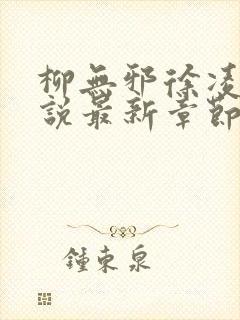 柳無邪徐凌
說最新章節
鍾東泉